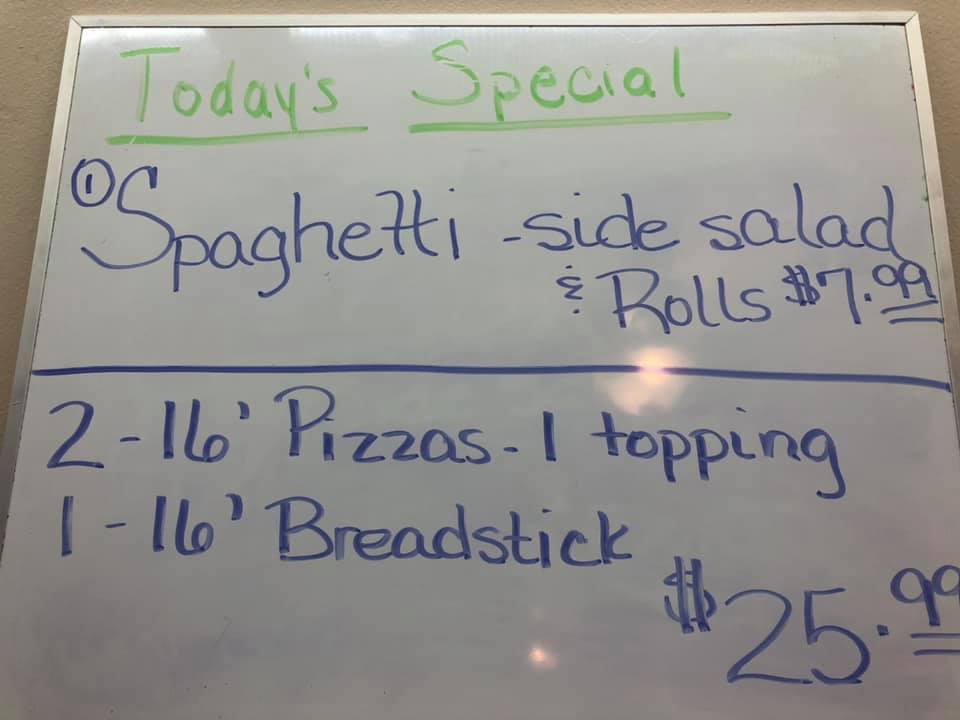 Today's Special
① Spaghetti - side salad
& Rolls $7.99
2 - 16' Pizzas - 1 topping
1 - 16' Breadstick
$25.99